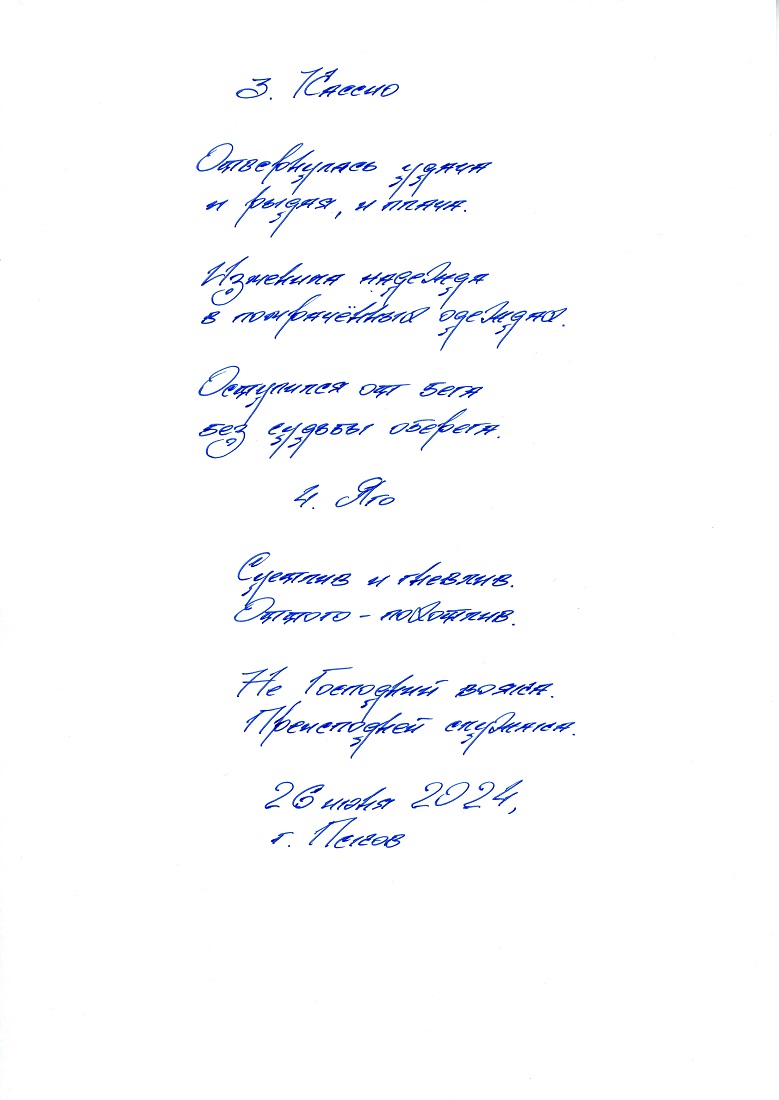 3. Кассио
Отвернулась удача
и рыдая, и плача.
Изменила надежда
в помрачённых одеждах.
Оступился от бега
без судьбы оберега.
4. Яго
Суетлив и гневлив.
Оттого - похотлив.
Не Господний вояка.
Преисподней служака.
26 июня 2024,
г. Псков